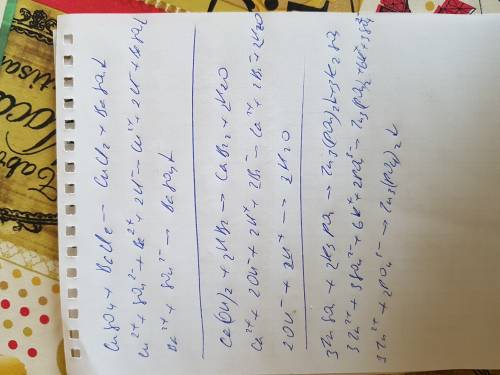 CuSO4 + BaCl2 → CuCl2 + BaSO4↓
Cu²⁺ + SO4²⁻ + Ba²⁺ + 2Cl⁻ → Cu²⁺ + 2Cl⁻ + BaSO4↓
Ba²⁺ + SO4²⁻ → BaSO4↓
Ca(OH)2 + 2HBr → CaBr2 + 2H2O
Ca²⁺ + 2OH⁻ + 2H⁺ + 2Br⁻ → Ca²⁺ + 2Br⁻ + 2H2O
2OH⁻ + 2H⁺ → 2H2O
3ZnSO4 + 2K3PO4 → Zn3(PO4)2↓ + 3K2SO4
3Zn²⁺ + 3SO4²⁻ + 6K⁺ + 2PO4³⁻ → Zn3(PO4)2 + 6K⁺ + 3SO4²⁻
3Zn²⁺ + 2PO4³⁻ → Zn3(PO4)2↓